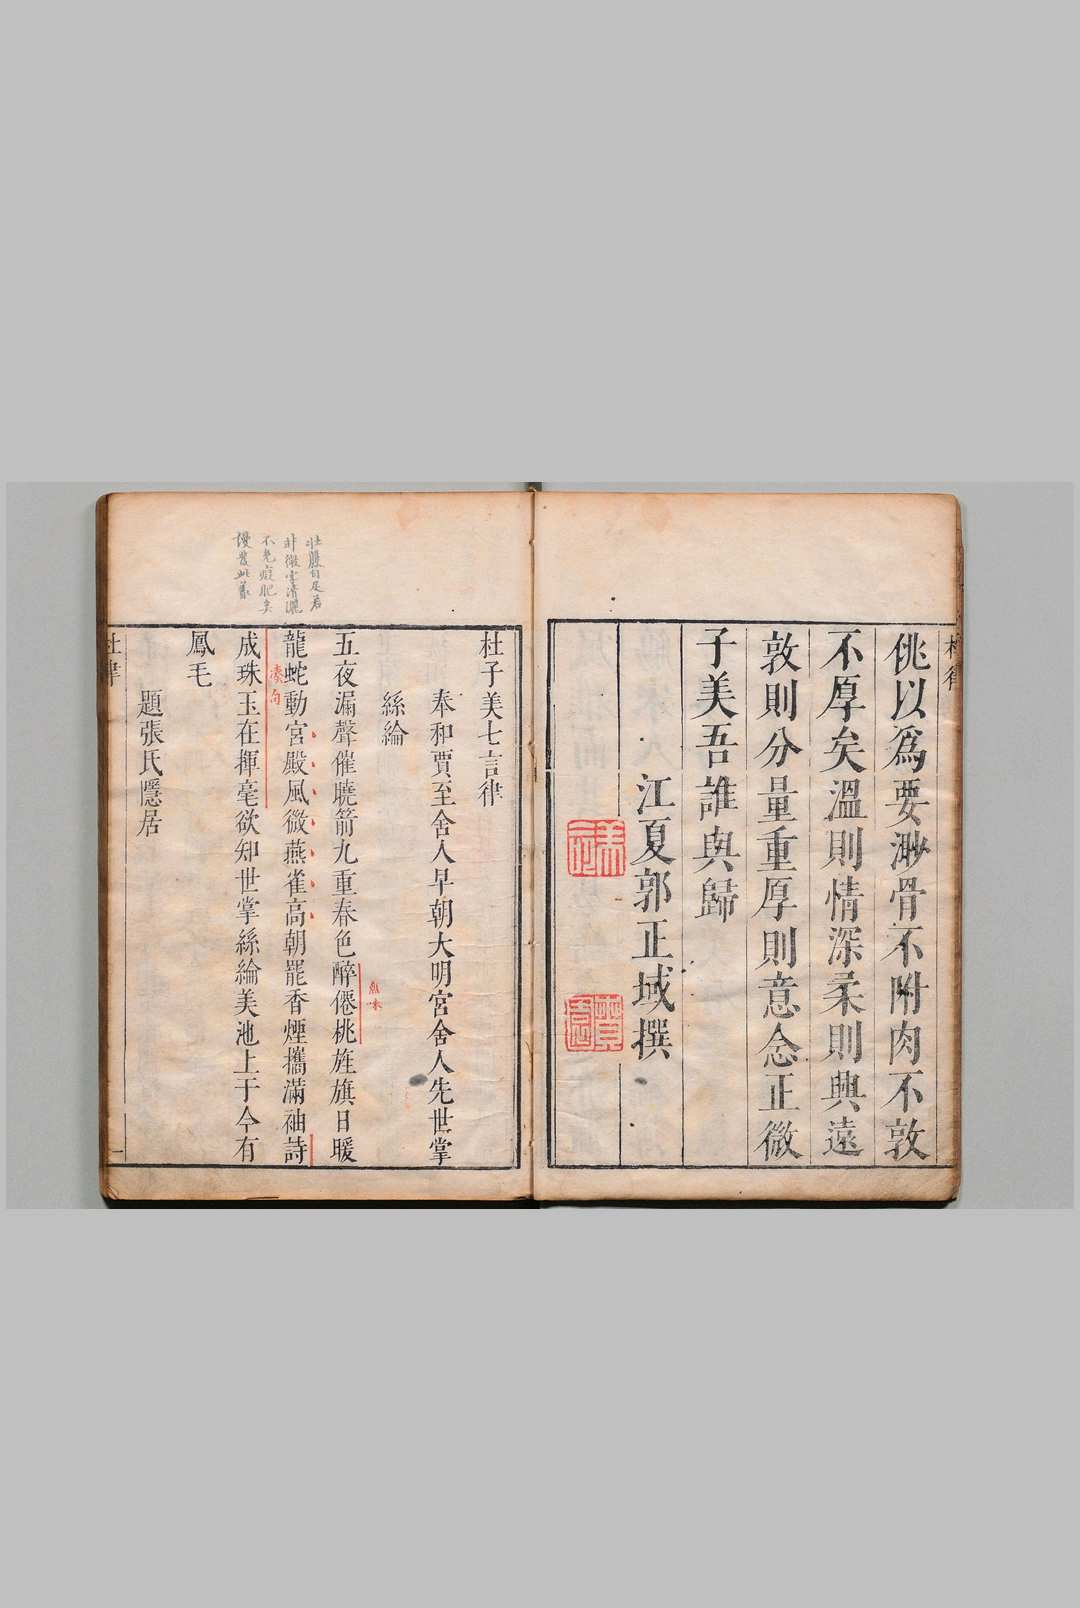 佻以爲要渺骨不附肉不敦
不厚矣溫則情深柔則興遠
敦則分量重厚則意念正微
子美吾誰與歸
江夏郭正域撰
杜子美七言律
奉和賈至舍人早朝大明宮舍人先世掌
絲綸
五夜漏聲催曉箭九重春色醉僊桃旌旗日暖
龍蛇動宮殿風微燕雀高朝罷香煙攜滿袖詩
成珠玉在揮毫欲知世掌絲綸美池上于今有
鳳毛
題張氏隱居
杜律
一
湊句